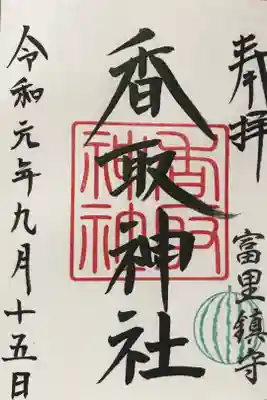 奉拝
富里鎮守
香取神社
令和元年九月十五日